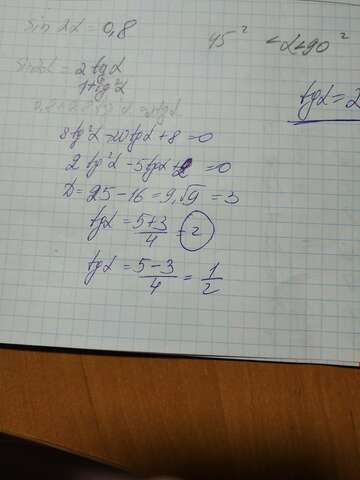 sin 2α = 0,8
45² < α < 90²
sin2α = 2 tgα
1 + tg²α
tgα = 2
8 tg²α - 20 tgα + 8 = 0
2 tg²α - 5 tgα + 2 = 0
D = 25 - 16 = 9, √9 = 3
tgα = 5+3 / 4 = 2
tgα = 5-3 / 4 = 1/2